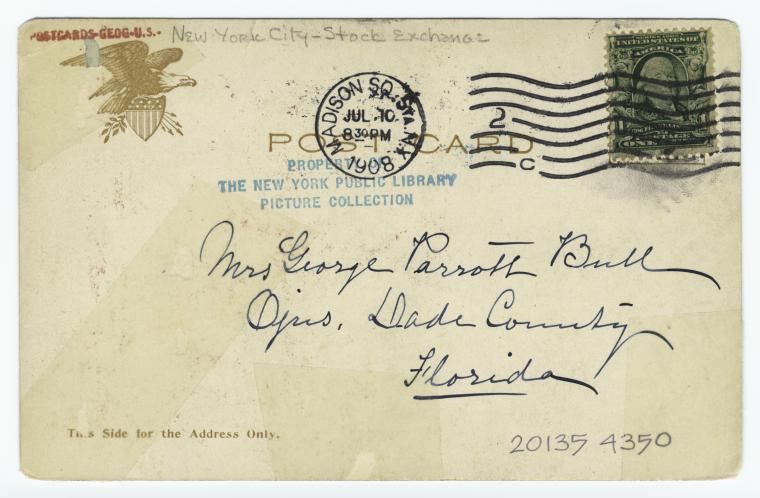 POSTCARDS-GEOG-U.S.-
New York City-Stock Exchange
SERIES 1902
UNITED STATES OF
AMERICA
MADISON SQ. STA. N.Y.
JUL 10
8 30 PM
1908
2
C
POST CARD
PROPERTY OF
THE NEW YORK PUBLIC LIBRARY
PICTURE COLLECTION
Mrs George Parrott Bull
Ojus, Dade County
Florida
This Side for the Address Only.
20135 4350